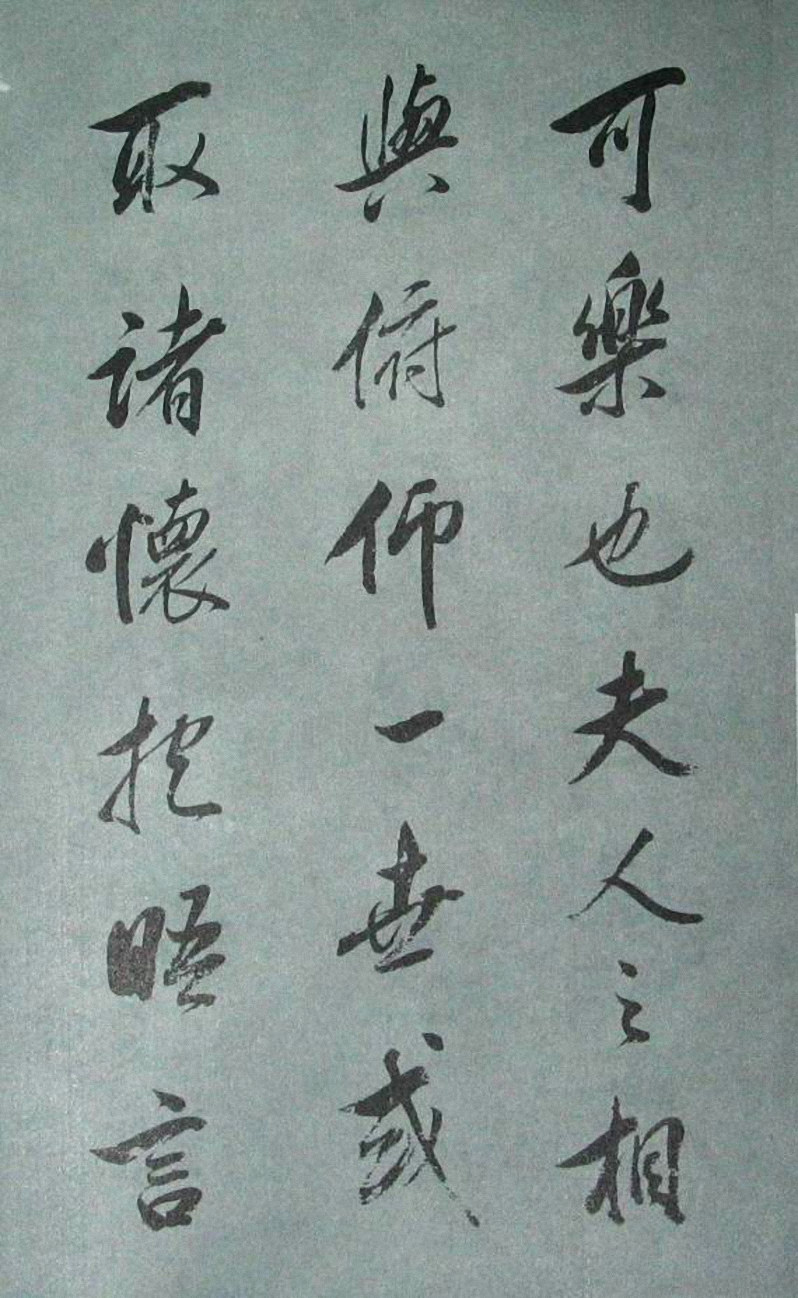 可樂也夫人之相
與俯仰一世或
取諸懷抱晤言